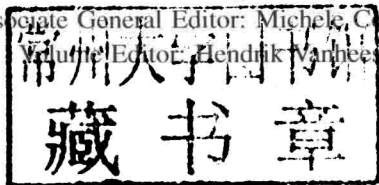 sociate General Editor: Michele C
Volume Editor: Hendrik Vanhees
常州大学图书馆
藏书章